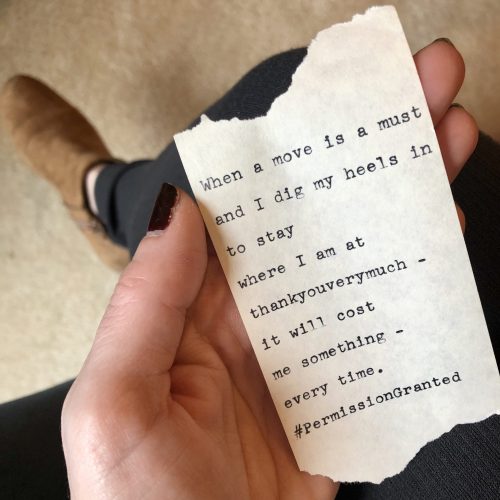 When a move is a must
and I dig my heels in
to stay
where I am at
thankyouverymuch -
it will cost
me something -
every time.
#PermissionGranted